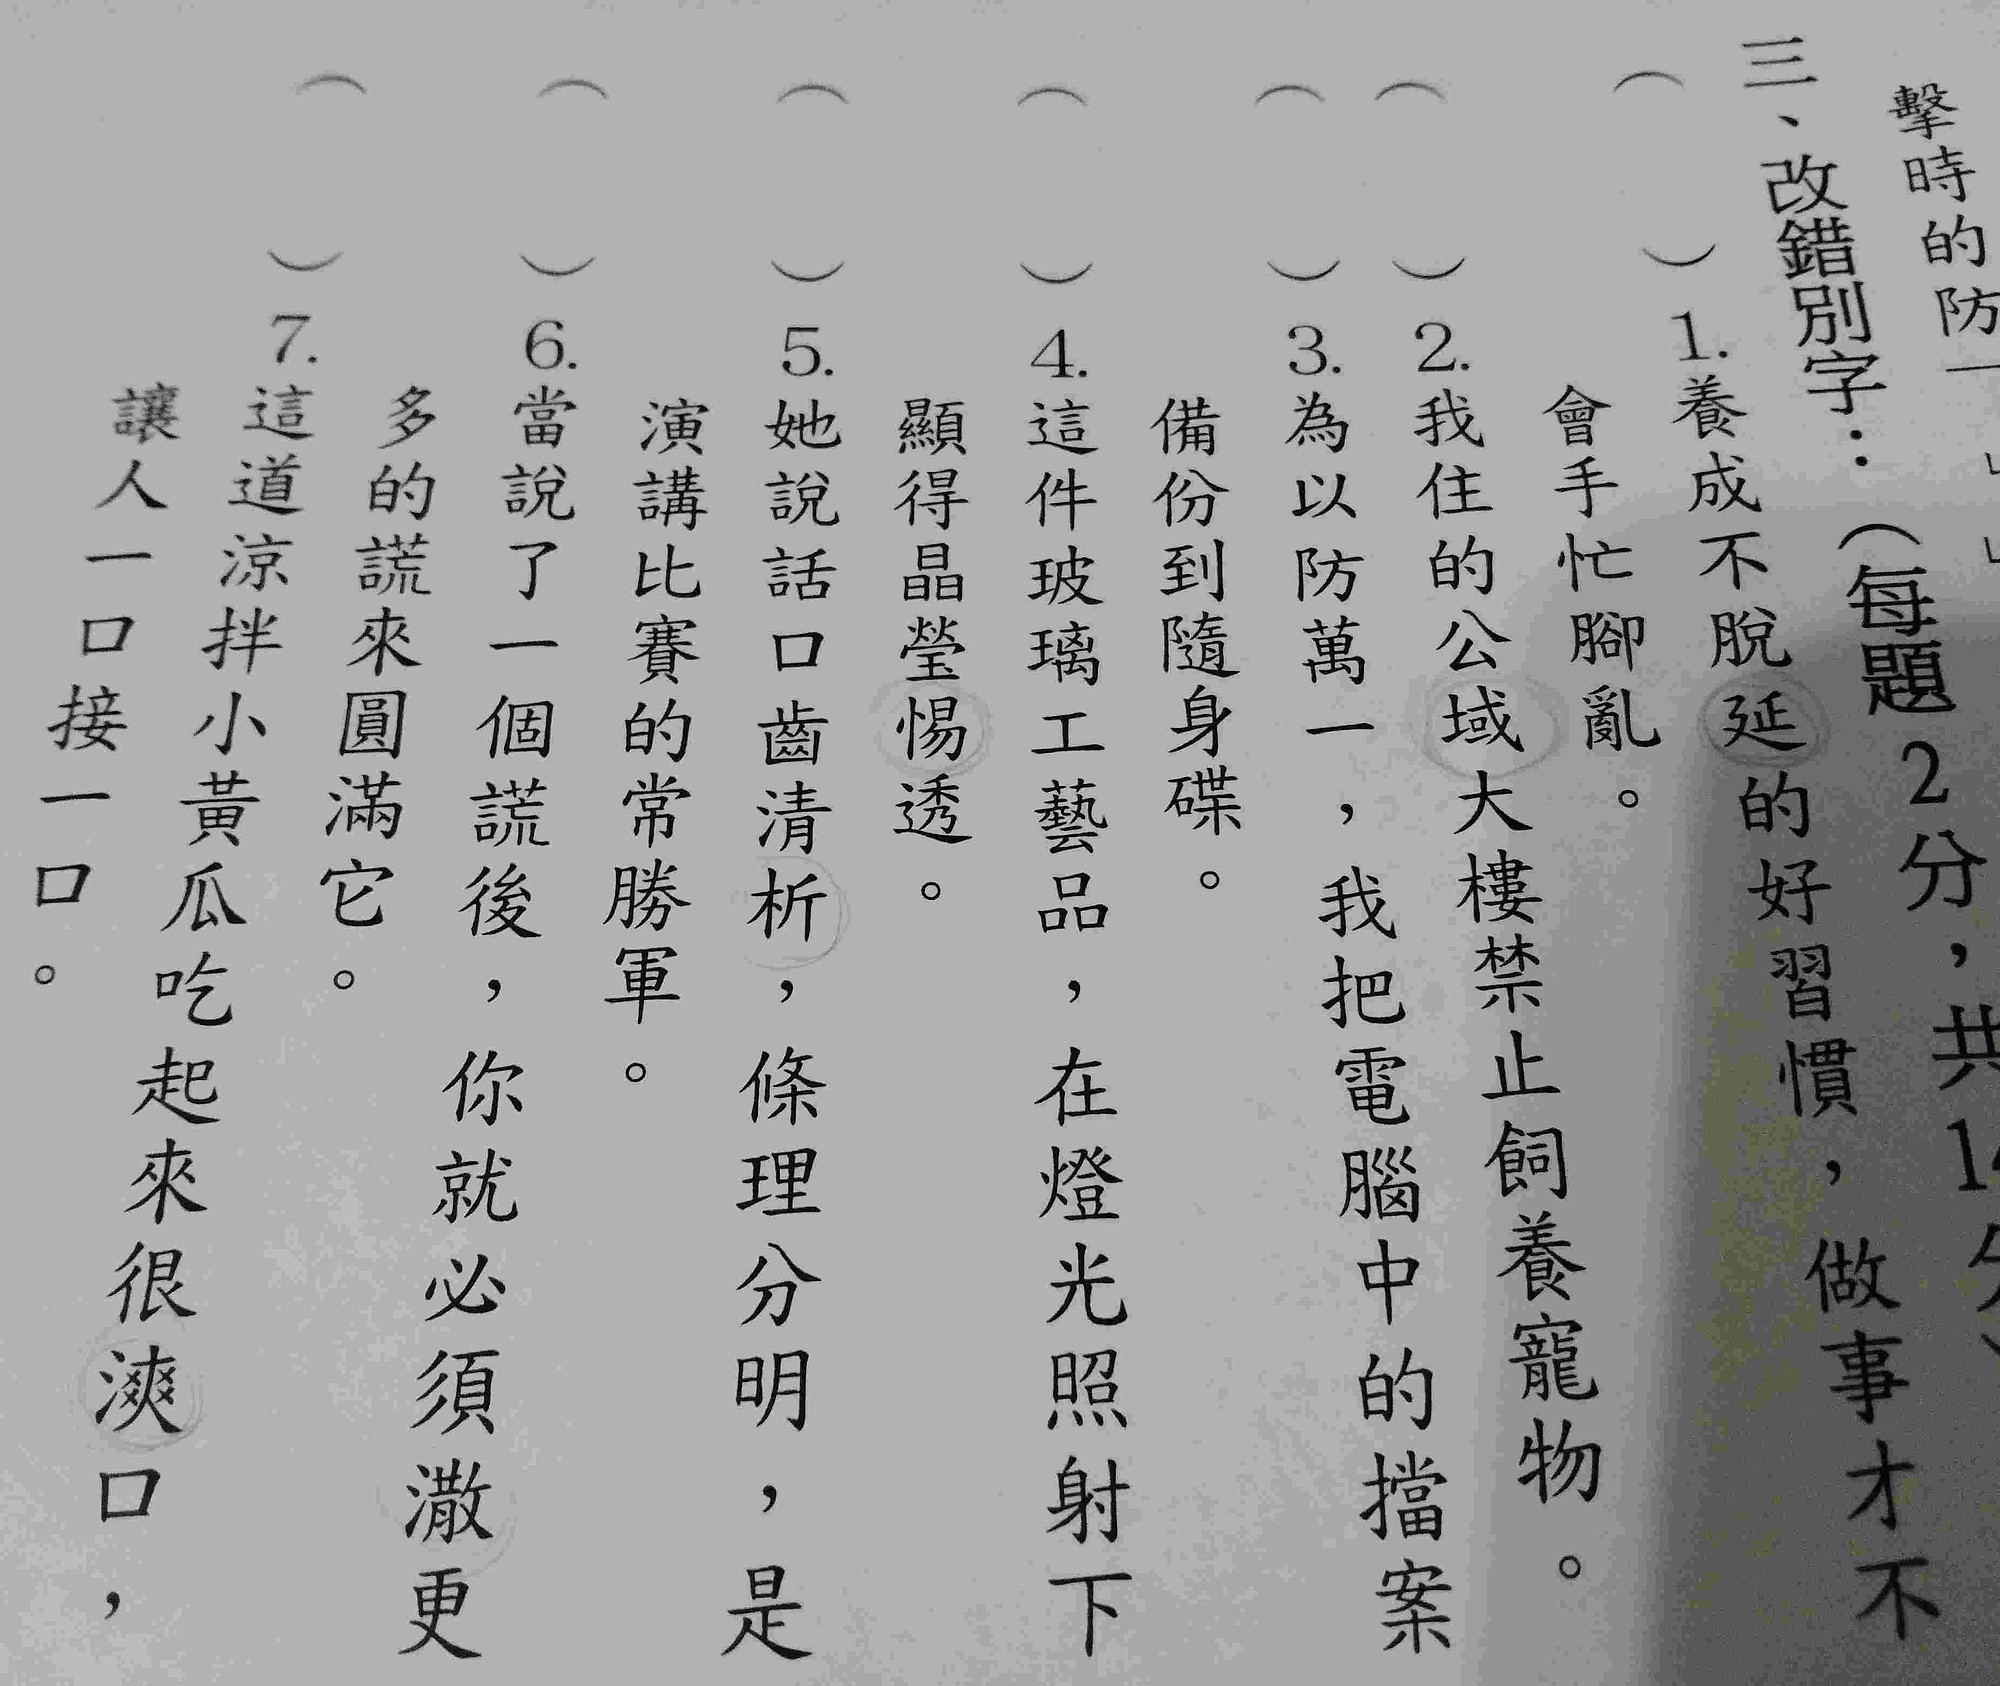 擊時的防
三、改錯別字：（每題2分，共14分）
（　）1.養成不脫延的好習慣，做事才不
會手忙腳亂。
（　）2.我住的公域大樓禁止飼養寵物。
（　）3.為以防萬一，我把電腦中的擋案
備份到隨身碟。
（　）4.這件玻璃工藝品，在燈光照射下
顯得晶瑩惕透。
（　）5.她說話口齒清析，條理分明，是
演講比賽的常勝軍。
（　）6.當說了一個謊後，你就必須潵更
多的謊來圓滿它。
（　）7.這道涼拌小黃瓜吃起來很漺口，
讓人一口接一口。